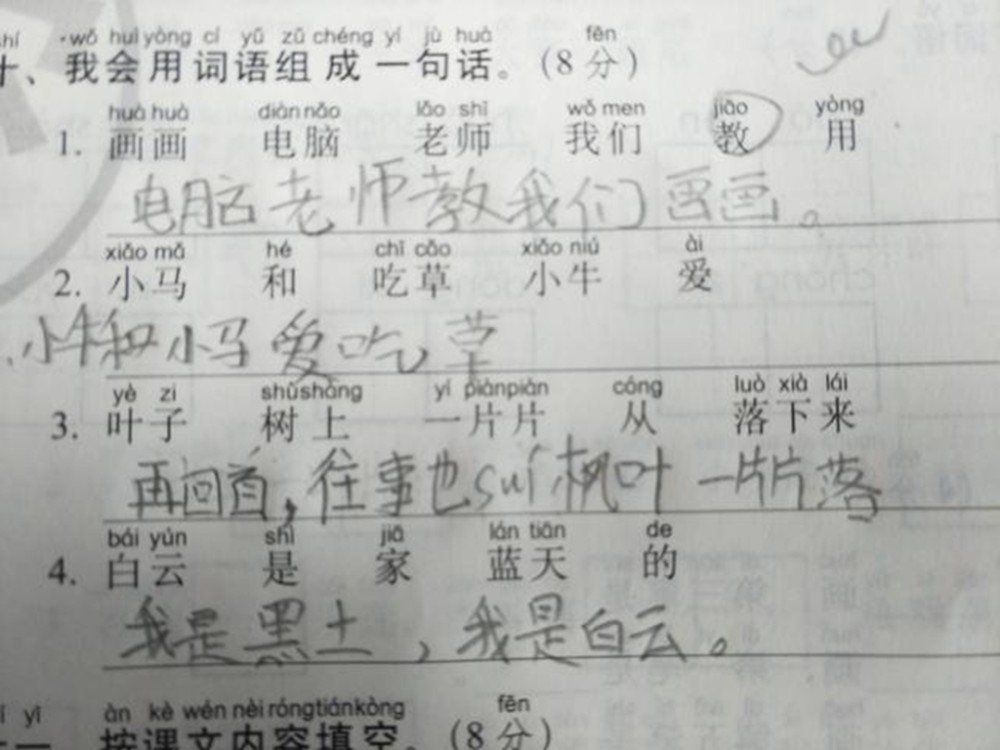 shí wǒ huì yòng cí yǔ zǔ chéng yí jù huà fēn
十、我会用词语组成一句话。(8分)
huà huà diàn nǎo lǎo shī wǒ men jiāo yòng
1. 画画 电脑 老师 我们 教 用
电脑老师教我们画画。
xiǎo mǎ hé chī cǎo xiǎo niú ài
2. 小马 和 吃草 小牛 爱
小牛和小马爱吃草
yè zi shù shàng yí piàn piàn cóng luò xià lái
3. 叶子 树上 一片片 从 落下来
再回首,往事也suí枫叶一片片落
bái yún shì jiā lán tiān de
4. 白云 是 家 蓝天 的
我是黑土,我是白云。
yī àn kè wén nèi róng tián kòng fēn
一、按课文内容填空。(8分)